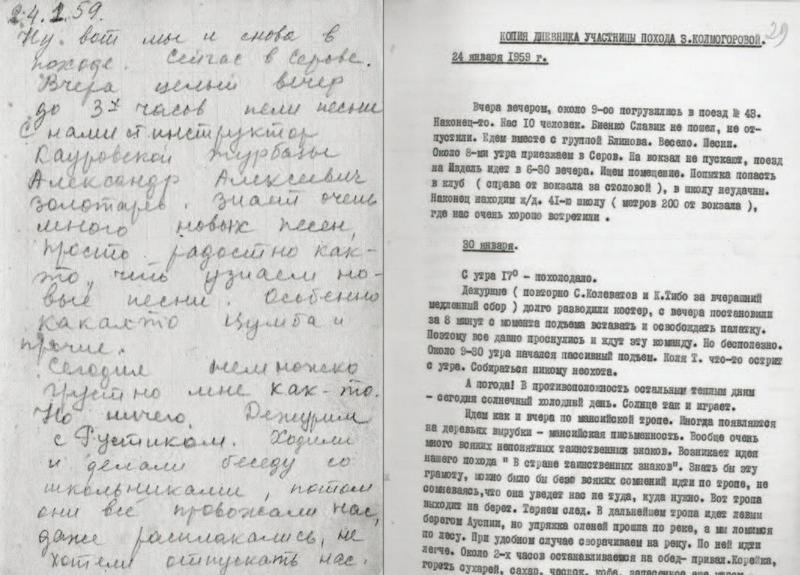 24.1.59.
Ну вот мы и снова в
походе. Сейчас в Серове.
Вчера целый вечер
до 3х часов пели песни
С нами ст инструктор
Кауровской турбазы
Александр Алексеевич
Золотарев. Знает очень
много новых песен,
просто радостно как-
то, что узнаем но-
вые песни. Особенно
какая-то Цумба и
прочие.
Сегодня немножко
грустно мне как-то.
Но ничего. Дежурим
с Рустиком. Ходили
и делали беседу со
школьниками, потом
они все провожали нас,
даже расплакались, не
хотели отпускать нас.
29
КОПИЯ ДНЕВНИКА УЧАСТНИЦЫ ПОХОДА З.КОЛМОГОРОВОЙ.
24 января 1959 г.
Вчера вечером, около 9-оо погрузились в поезд № 43.
Наконец-то. Нас 10 человек. Биенко Славик не пошел, не от-
пустили. Едем вместе с группой Блинова. Весело. Песни.
Около 8-ми утра приезжаем в Серов. На вокзал не пускают, поезд
на Ивдель идет в 6-30 вечера. Ищем помещение. Попытка попасть
в клуб ( справа от вокзала за столовой ), в школу неудачны.
Наконец находим ж/д. 41-ю школу ( метров 200 от вокзала ),
где нас очень хорошо встретили .
30 января.
С утра 17° - похолодало.
Дежурные ( повторно С.Колеватов и К.Тибо за вчерашний
медленный сбор ) долго разводили костер, с вечера постановили
за 8 минут с момента подъема вставать и освобождать палатку.
Поэтому все давно проснулись и ждут эту команду. Но бесполезно.
Около 9-30 утра начался пассивный подъем. Коля Т. что-то острит
с утра. Собираться никому неохота.
А погода! В противоположность остальным теплым дням
- сегодня солнечный холодний день. Солнце так и играет.
Идем как и вчера по мансийской тропе. Иногда появляются
на деревьях вырубки - мансийская письменность. Вообще очень
много всяких непонятных таинственных знаков. Возникает идея
нашего похода " В стране таинственных знаков". Знать бы эту
грамоту, можно было бы безо всяких сомнений идти по тропе, не
сомневаясь,что она уведет нас не туда, куда нужно. Вот тропа
выходит на берег. Теряем след. В дальнейшем тропа идет левым
берегом Ауспии, но упряжка оленей прошла по реке, а мы ломимся
по лесу. При удобном случае сворачиваем на реку. По ней идти
легче. Около 2-х часов останавливается на обед- привал.Корейка,
горсть сухарей, сахар, чеснок, кофе, запасенное